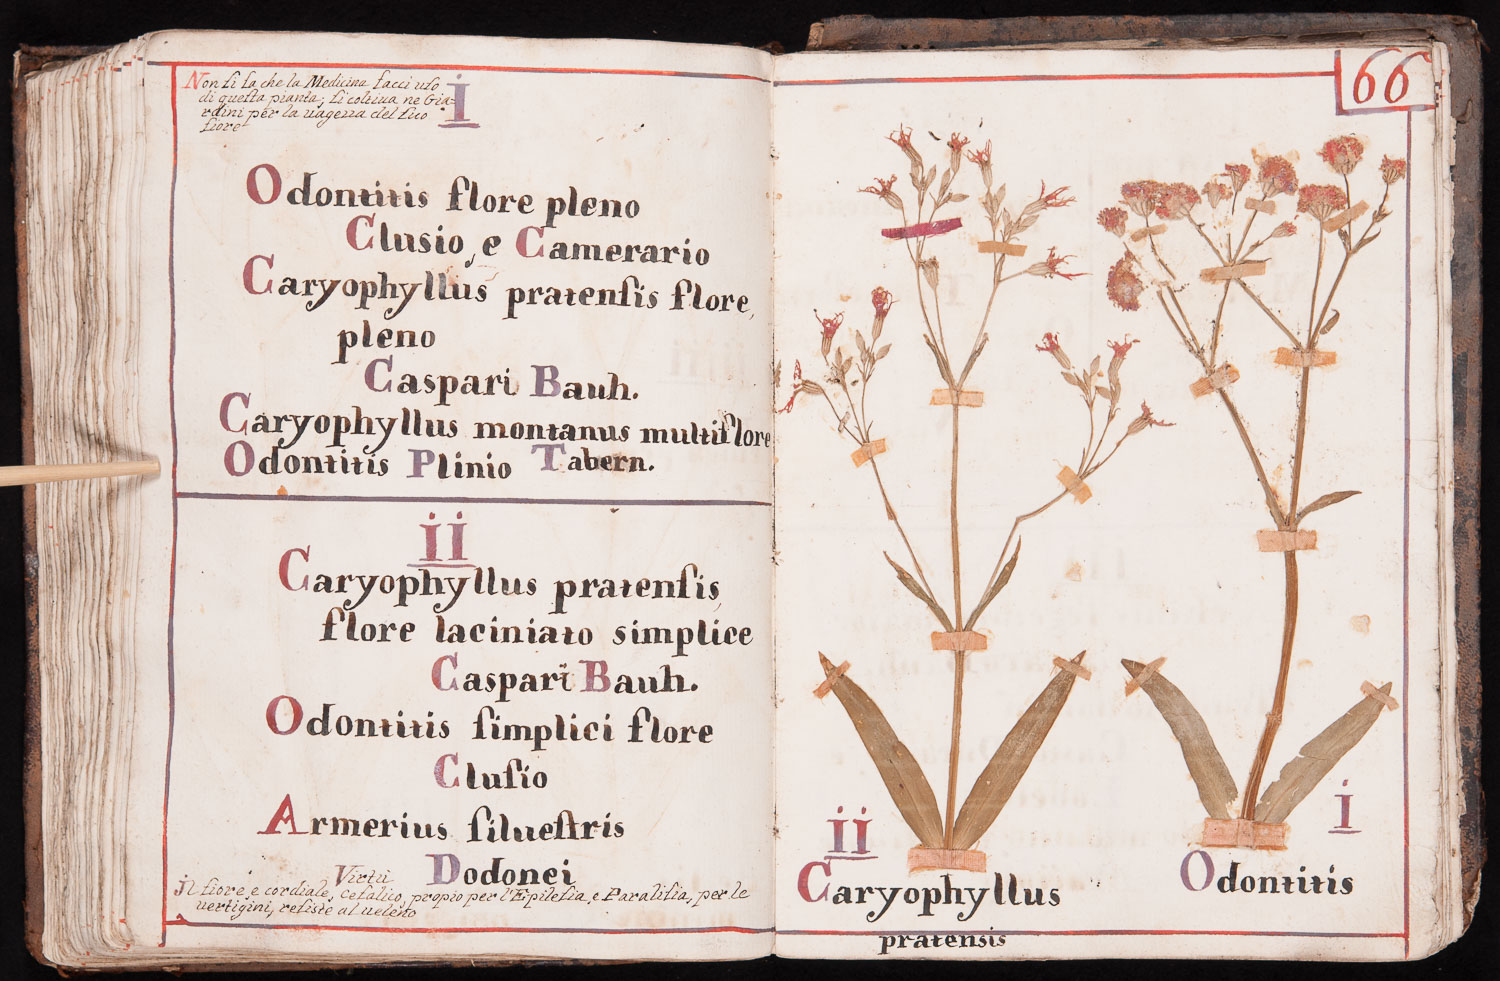 i
Non si sa che la Medicina facci uso
di questa pianta, si coltiua ne Gia=
rdini per la uagezza del suo
fiore
Odontitis flore pleno
Clusio, e Camerario
Caryophyllus pratenſis flore,
pleno
Caspari Bauh.
Caryophyllus montanus multiflore
Odontitis Plinio Tabern.
ii
Caryophyllus pratenſis,
flore laciniato simplice
Caspari Bauh.
Odontitis ſimplici flore
Cluſio
Armerius ſilueſtris
Dodonei
Virtù
il fiore, e cordiale, cefalico, propio per l'Epilesia, e Paralisia, per le
uertigini, resiste al ueleno
66
ii
Caryophyllus
pratensis
i
Odontitis